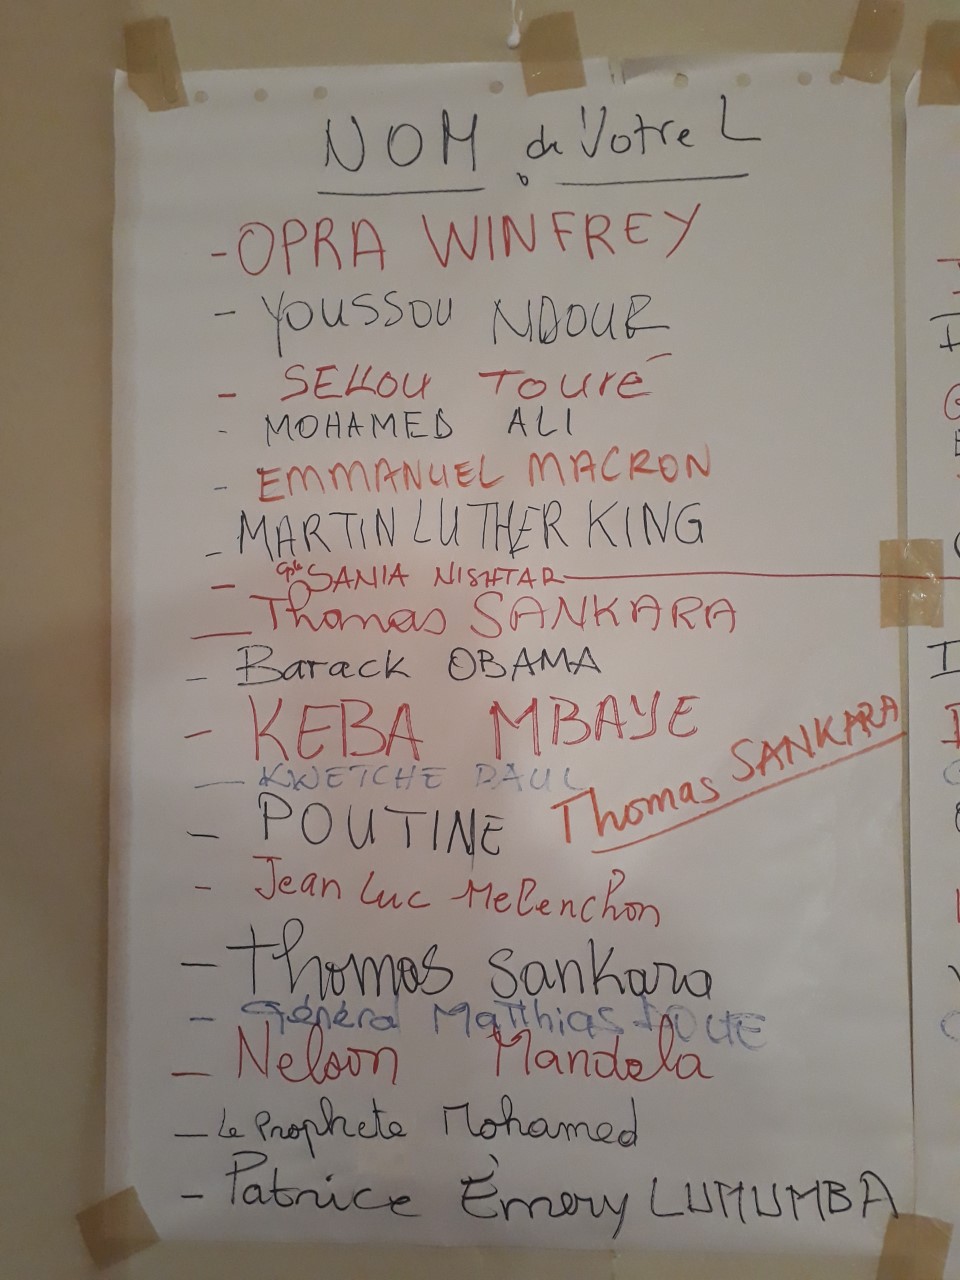 NOM de Votre L
- OPRA WINFREY
- YOUSSOU NDOUR
- SEKOU TOURÉ
- MOHAMED ALI
- EMMANUEL MACRON
- MARTIN LUTHER KING
- SANIA NISHTAR
- Thomas SANKARA
- Barack OBAMA
- KEBA MBAYE
- KWETCHE PAUL
Thomas SANKARA
- POUTINE
- Jean Luc Melenchon
- Thomas Sankara
- Général Matthias DOUE
- Nelson Mandela
- Le Prophete Mohamed
- Patrice Émery LUMUMBA